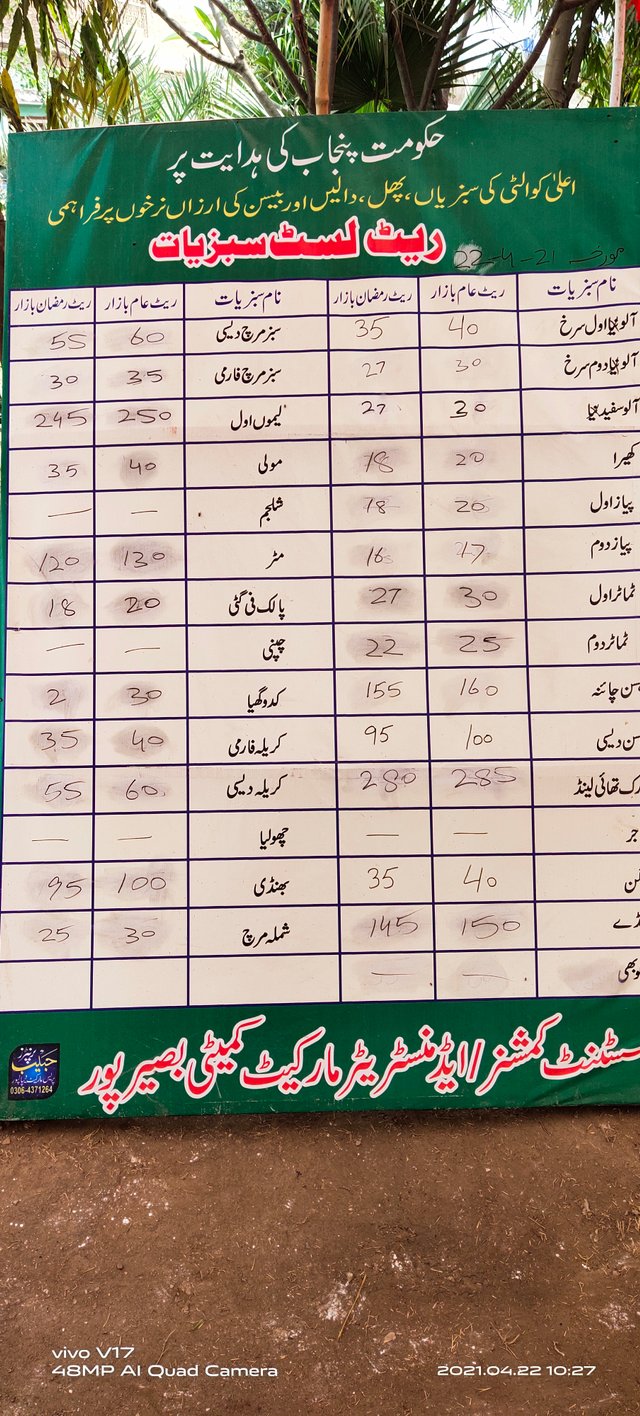 حکومت پنجاب کی ہدایت پر
اعلیٰ کوالٹی کی سبزیاں، پھل، دالیں اور بیسن کی ارزاں نرخوں پر فراہمی
ریٹ لسٹ سبزیات
مورخہ 22-4-21
نام سبزیات ریٹ عام بازار ریٹ رمضان بازار نام سبزیات ریٹ عام بازار ریٹ رمضان بازار
آلو نیا اول سرخ 40 35 سبز مرچ دیسی 60 55
آلو نیا دوم سرخ 30 27 سبز مرچ فارمی 35 30
آلو سفید نیا 30 27 لیموں اول 250 245
کھیرا 20 18 مولی 40 35
پیاز اول 20 18 شلجم — —
پیاز دوم 17 16 مٹر 130 120
ٹماٹر اول 30 27 پالک فی گٹی 20 18
ٹماٹر دوم 25 22 چپنی — —
چائنہ 160 155 کدو گھیا 30 2
دیسی 100 95 کریلہ فارمی 40 35
تھائی لینڈ 285 280 کریلہ دیسی 60 55
— — چھولیا — —
40 35 بھنڈی 100 95
150 145 شملہ مرچ 30 25
— —
کمشنر/ایڈمنسٹریٹر مارکیٹ کمیٹی بصیر پور
0306-4371264
vivo V17
48MP AI Quad Camera
2021.04.22 10:27